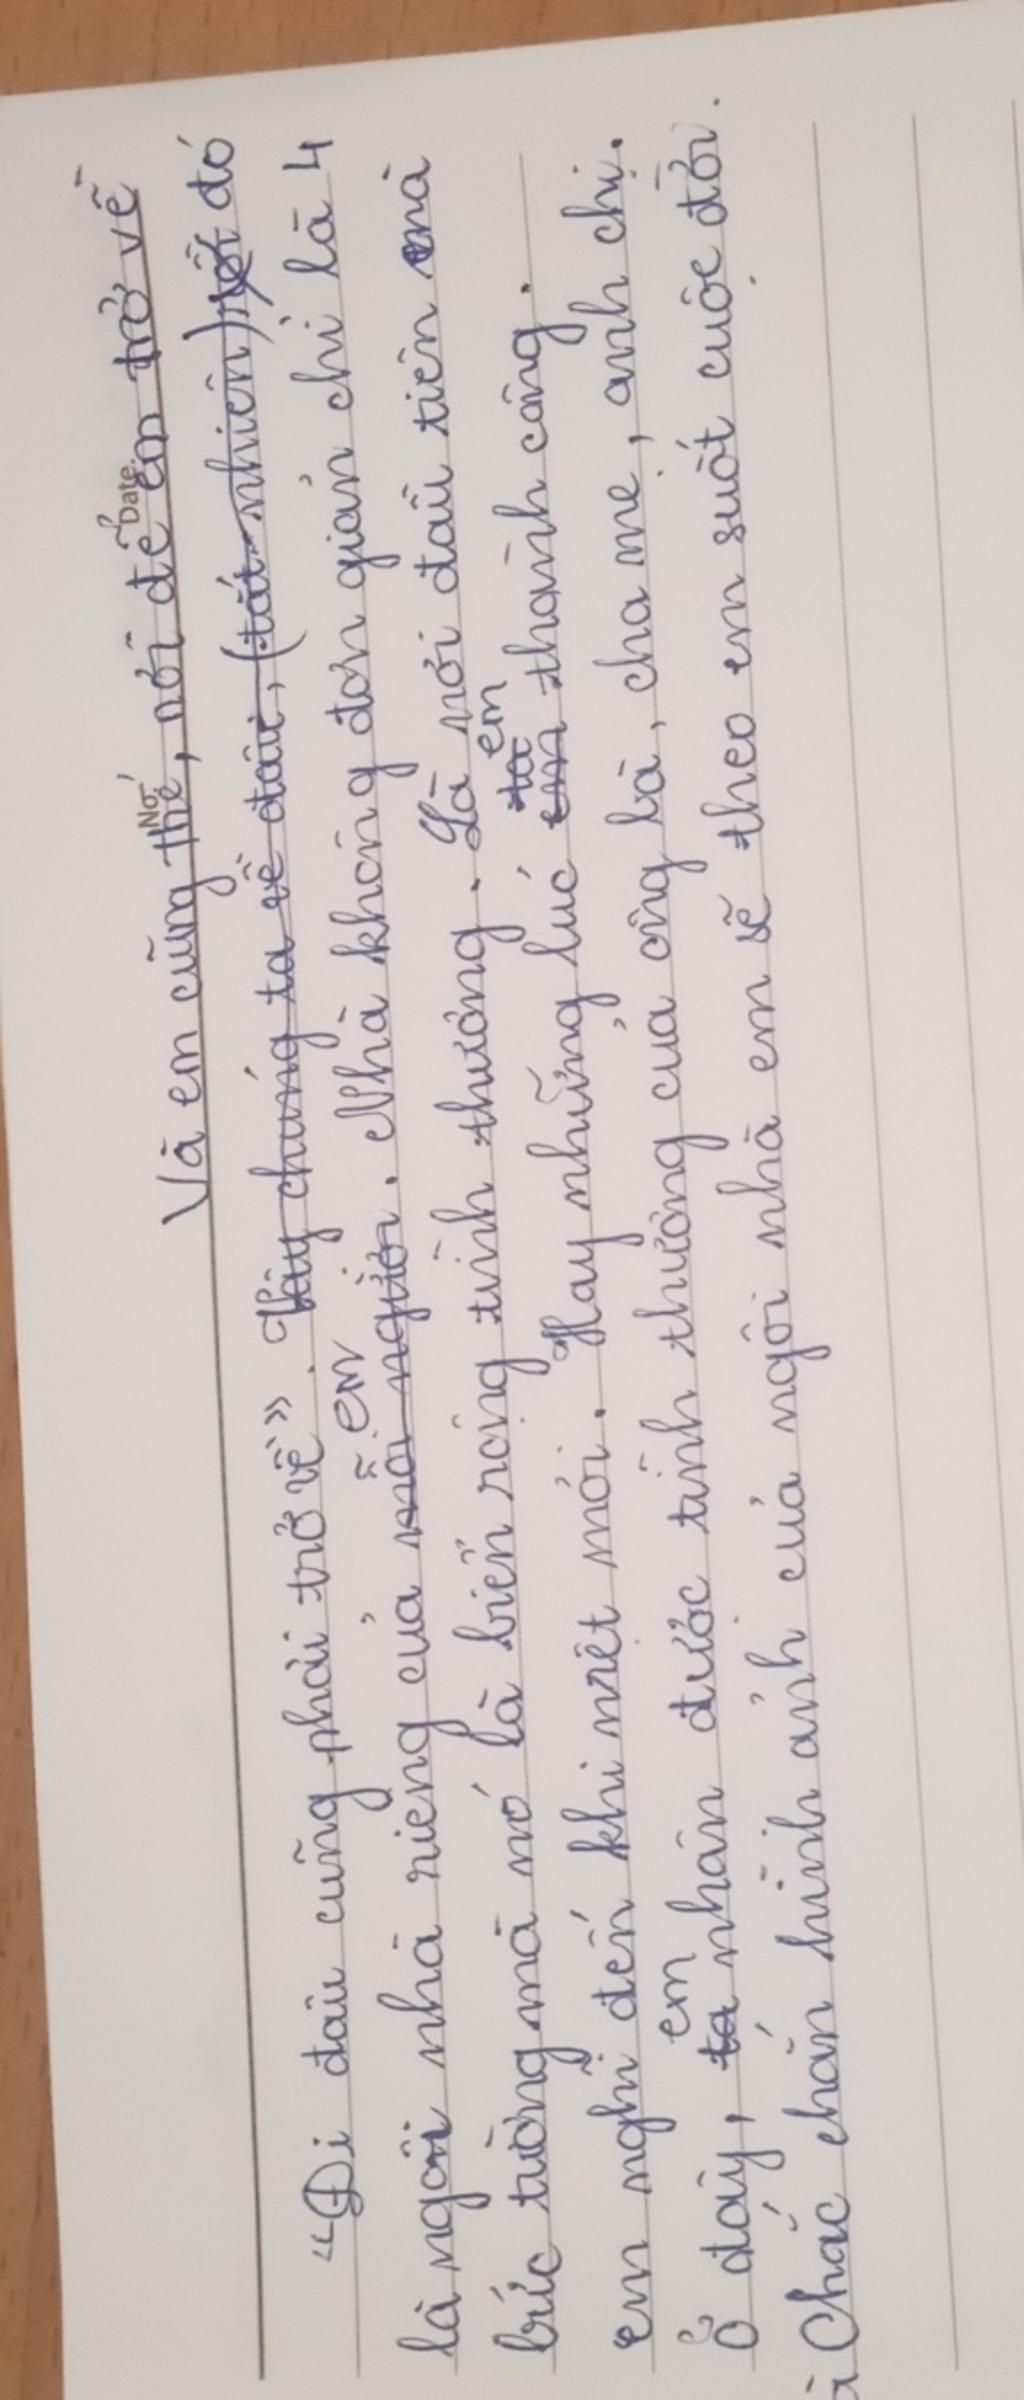 Và em cũng thế, nơi để em trở về
No. Date.
"Đi đâu cũng phải trở về". Vậy chúng ta về đâu, (tất nhiên) rồi đó
em
là ngôi nhà riêng của mỗi người. Nhà không đơn giản chỉ là 4
bức tường mà nó là biển rộng tình thương. Là nơi đầu tiên mà
ta em
em nghĩ đến khi mệt mỏi. Hay những lúc em thành công.
em
Ở đây, ta nhận được tình thương của ông bà, cha mẹ, anh chị.
Chắc chắn hình ảnh của ngôi nhà em sẽ theo em suốt cuộc đời.